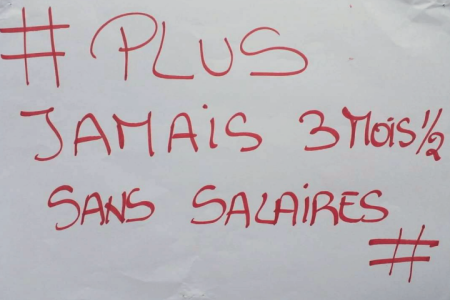 # PLUS
JAMAIS 3 MOIS 1/2
SANS SALAIRES
#